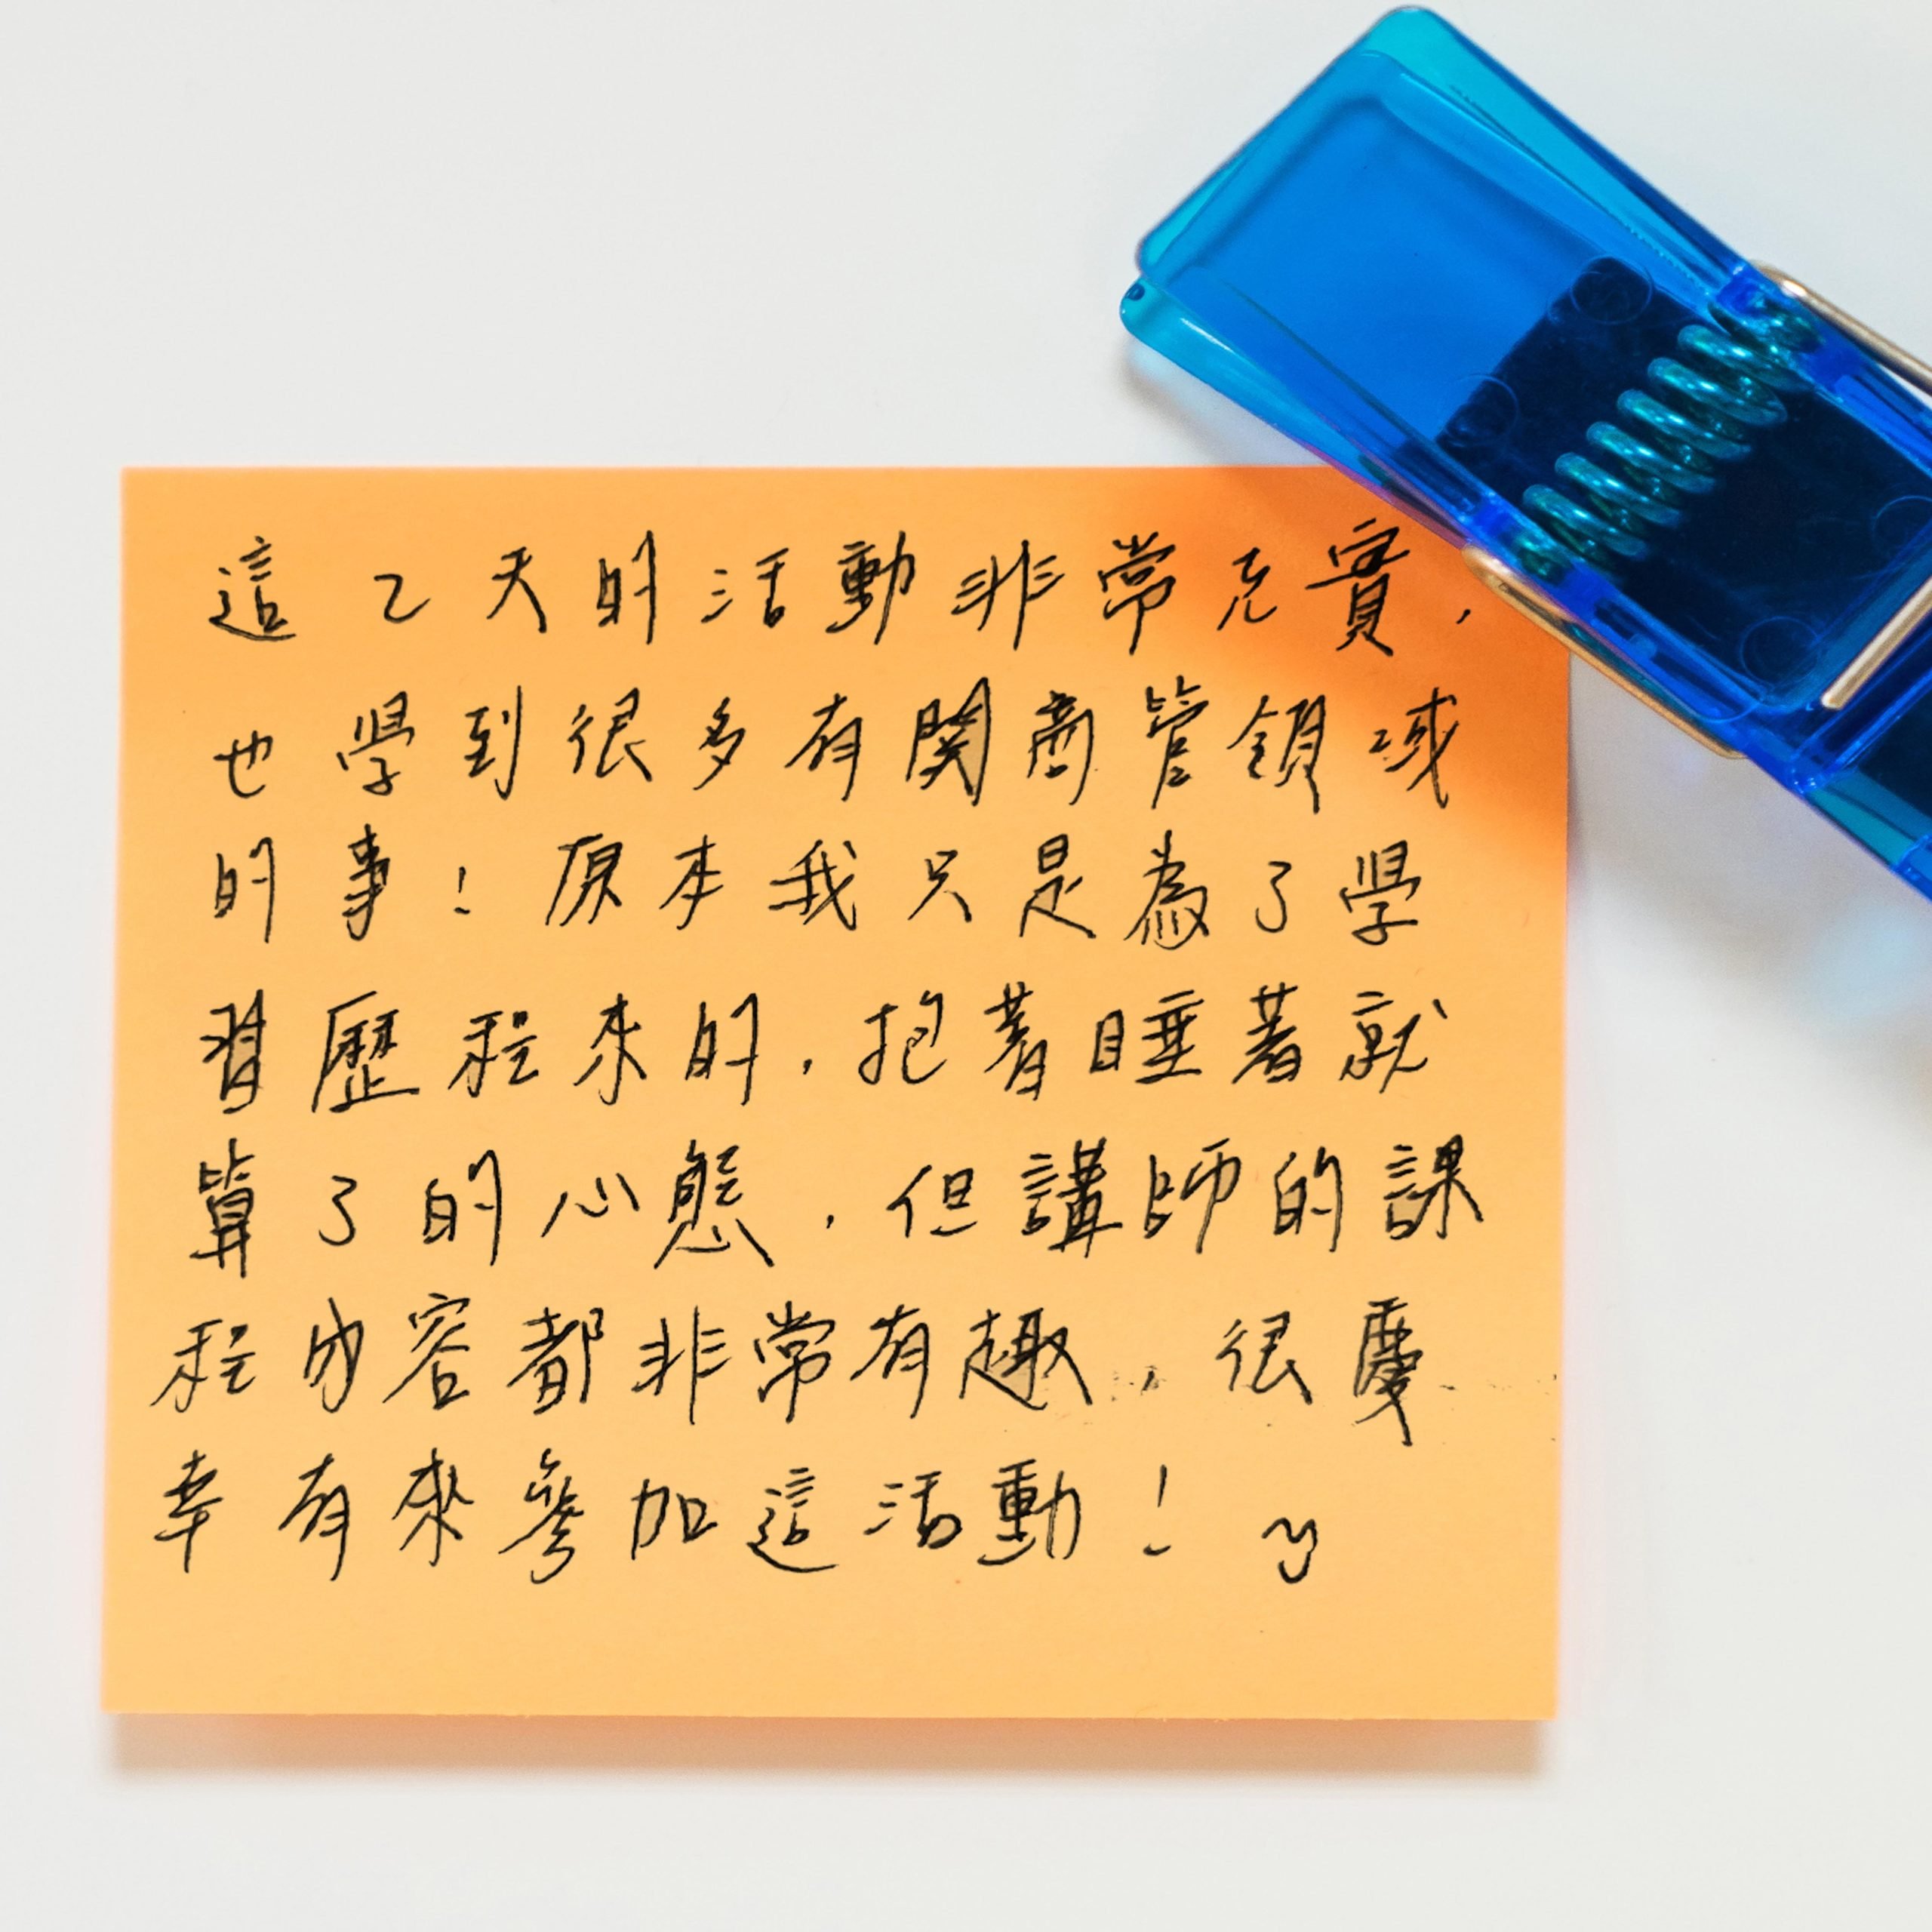 這2天的活動非常充實，
也學到很多有関商管領域
的事！原本我只是為了學
習歷程來的，抱著睡著就
算了的心態，但講師的課
程內容都非常有趣，很慶
幸有來參加這活動！